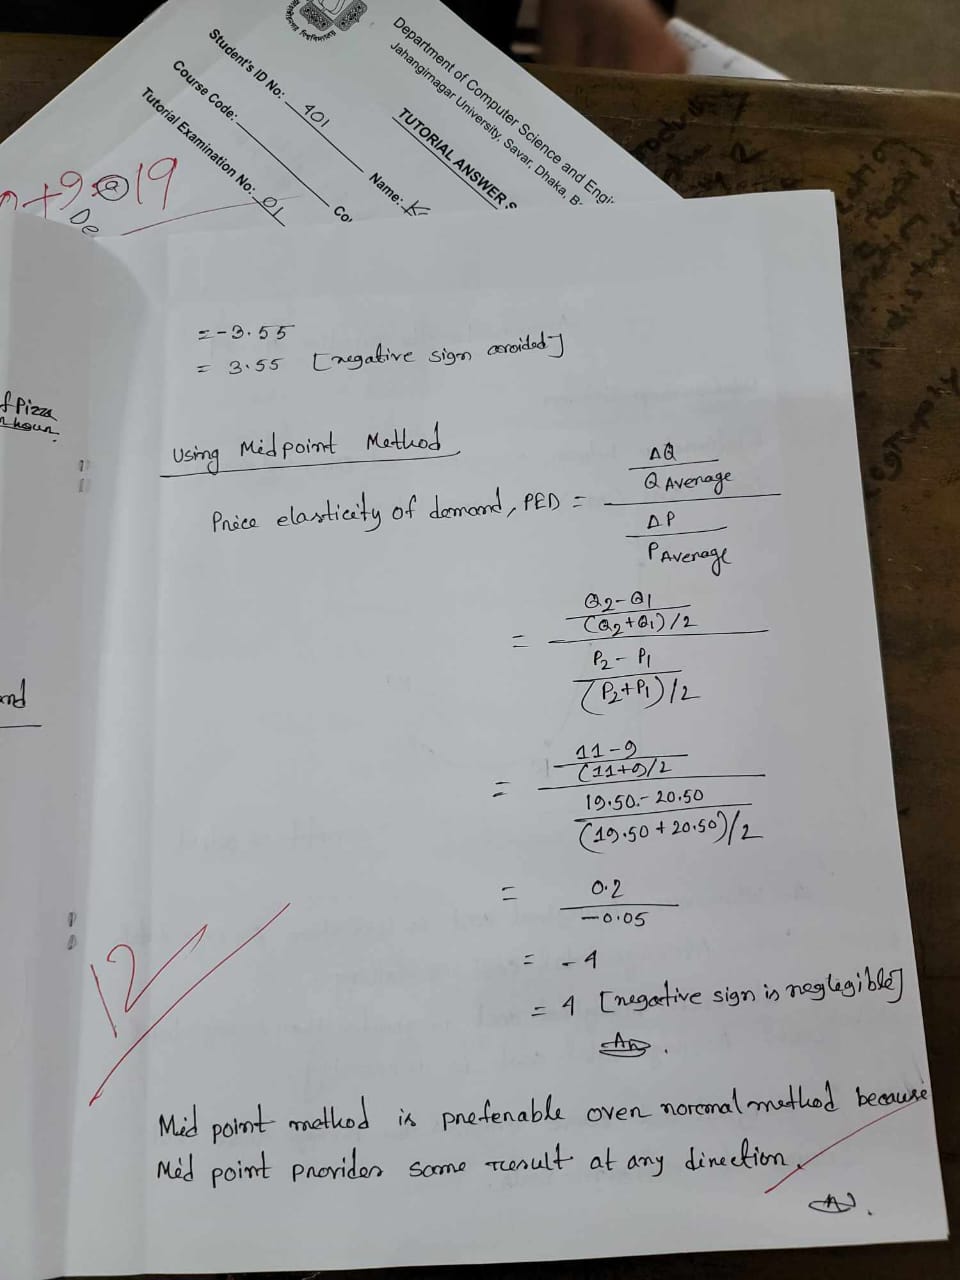 Department of Computer Science and Engi
Jahangirnagar University, Savar, Dhaka, B
TUTORIAL ANSWER S
Student's ID No: 401
Name: K
Course Code:
Co
Tutorial Examination No: 01
+9 19
a
De
f Pizza
hour.
and
= -3.55
= 3.55 [negative sign avoided]
Using Midpoint Method
Price elasticity of demand, PED = ΔQ / Q Average / ΔP / P Average
= Q2-Q1 / (Q2+Q1)/2 / P2-P1 / (P2+P1)/2
= 11-9 / (11+9)/2 / 19.50 - 20.50 / (19.50 + 20.50)/2
= 0.2 / -0.05
= -4
= 4 [negative sign is neglegible]
An.
12
Mid point method is preferable over normal method because
Mid point provides same result at any direction.